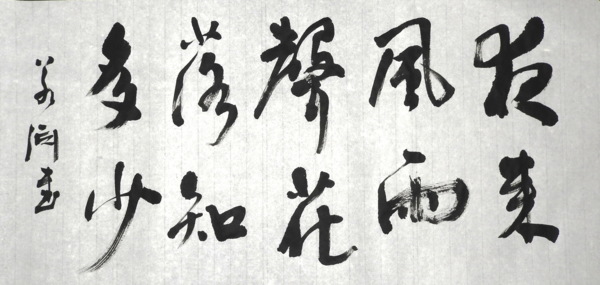 夜来
風雨
聲花
落知
多少